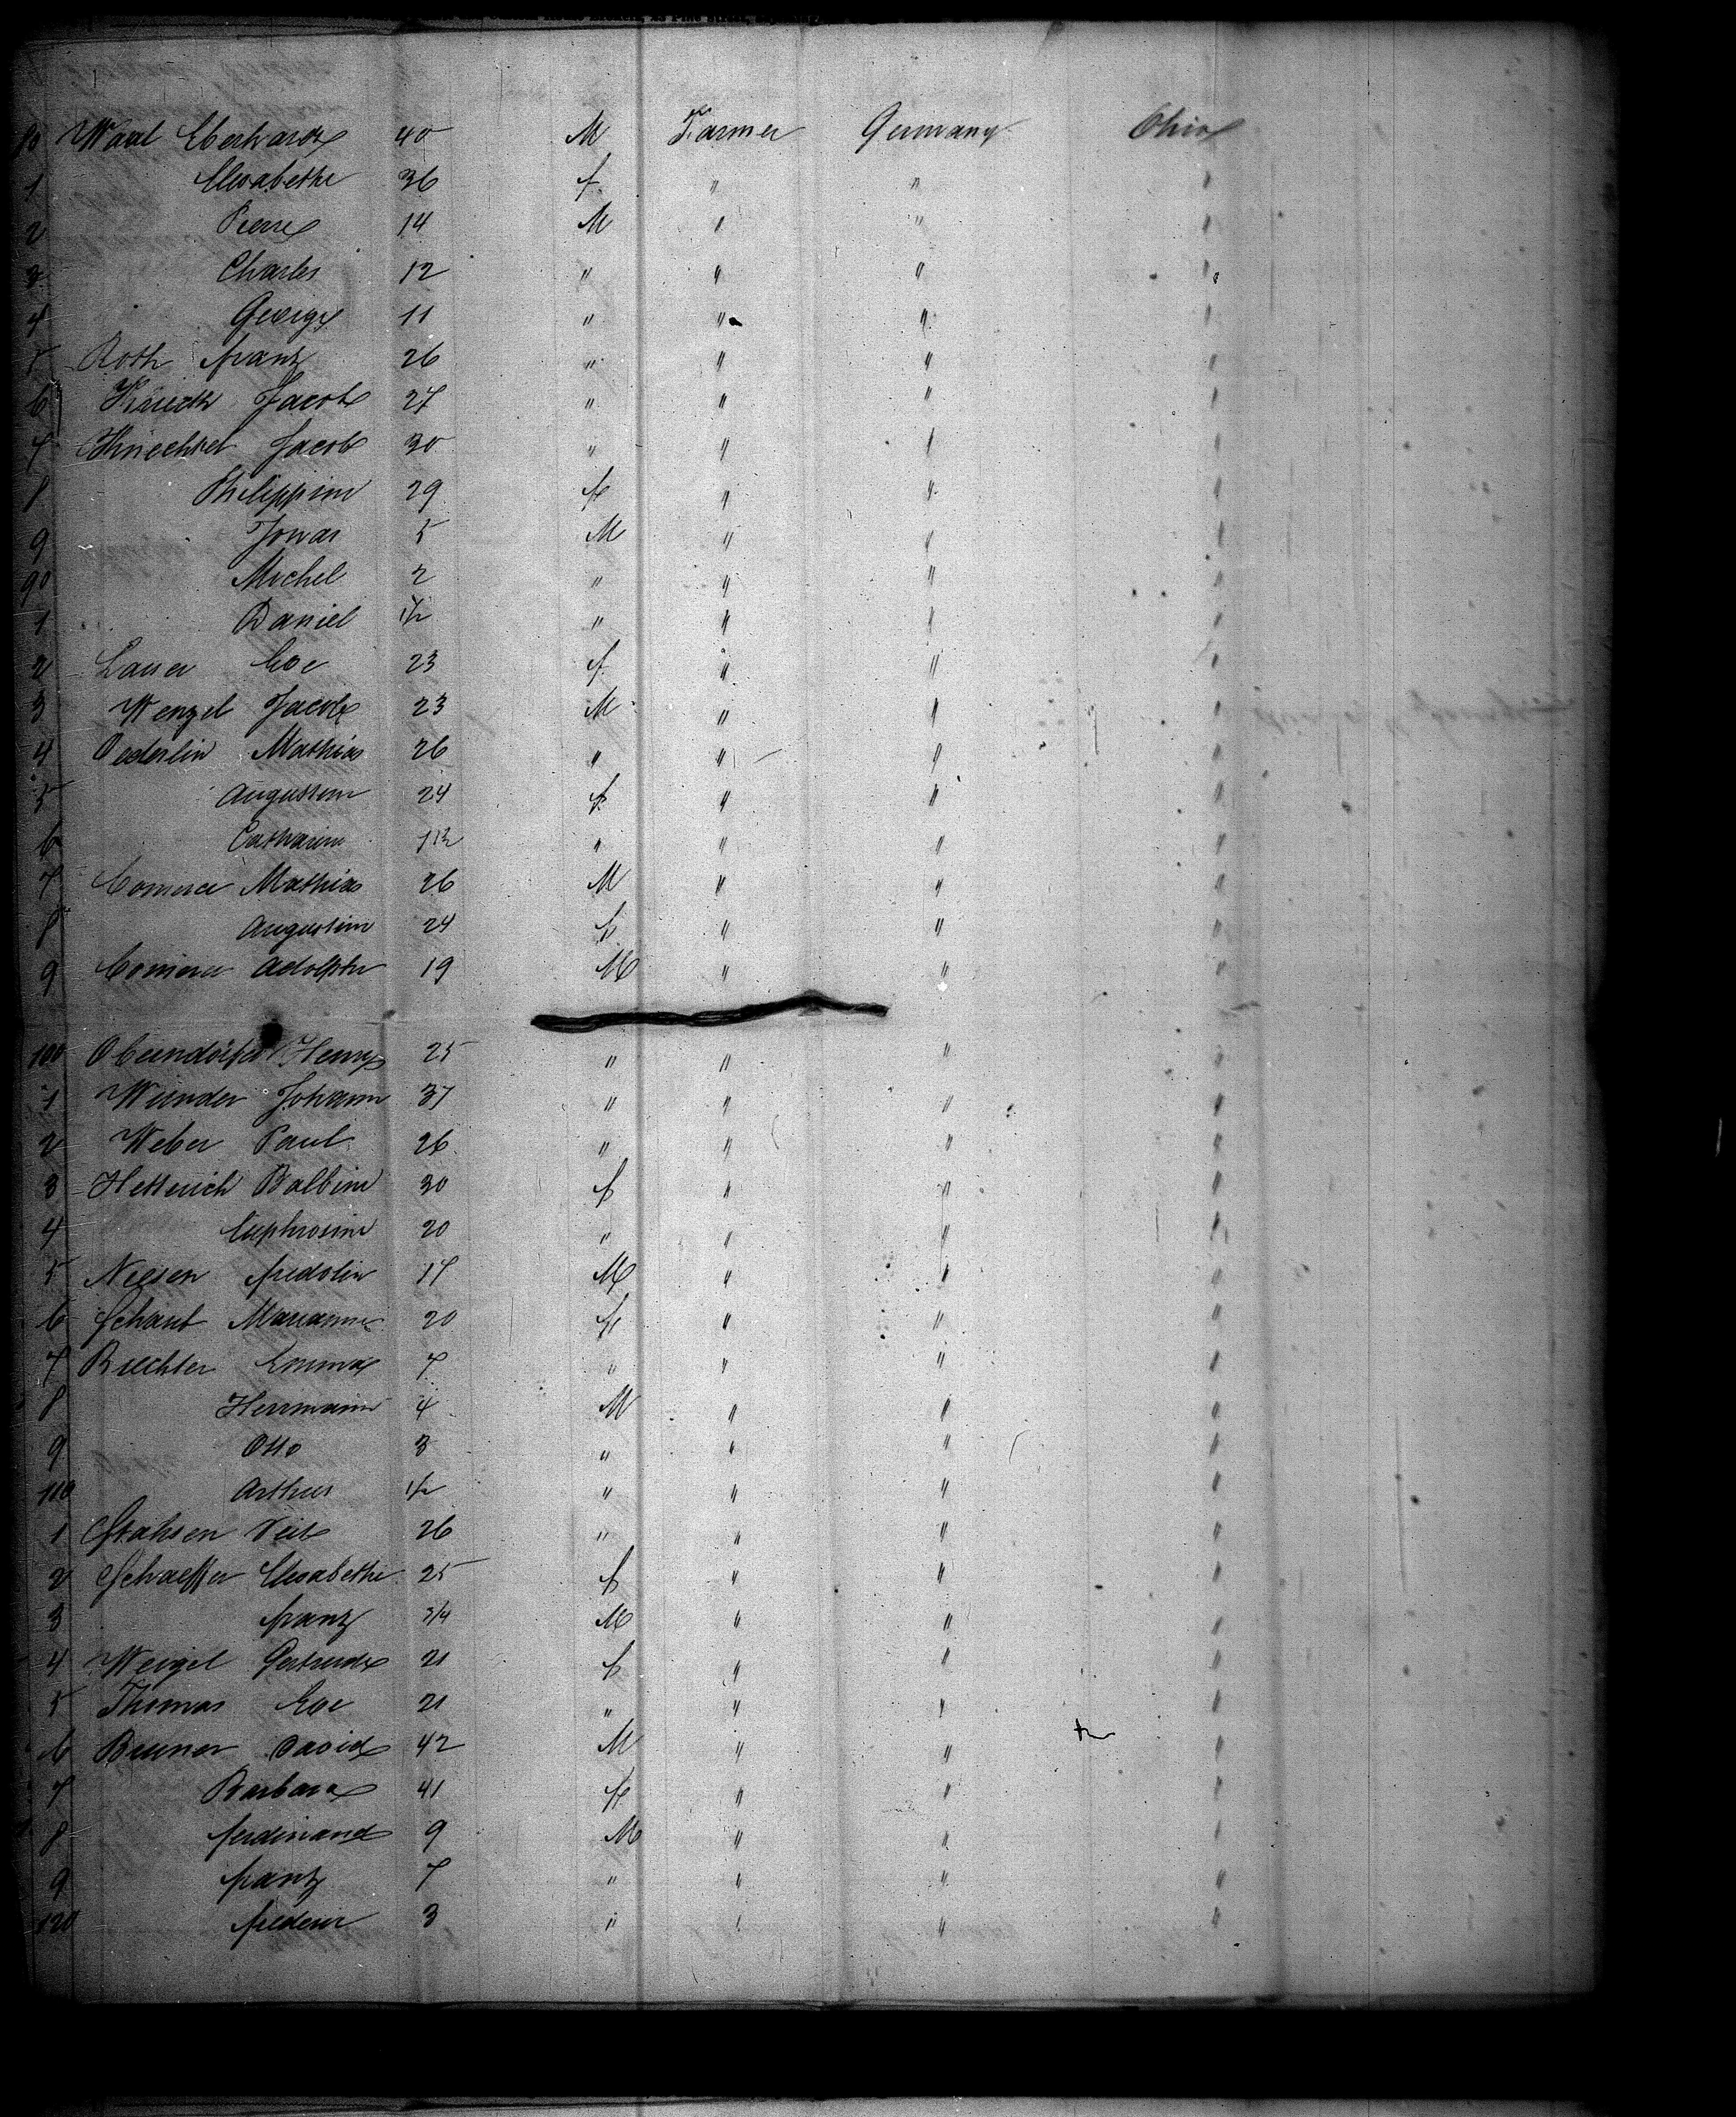 80 Waal Eberhard 40 M Farmer Germany Ohio
1 Elisabethe 36 f " " "
2 Pierre 14 M " " "
3 Charles 12 " " " "
4 George 11 " " " "
5 Roth franz 26 " " " "
6 Jacob 27 " " " "
7 Knechtel Jacob 30 " " " "
8 Philippine 29 f " " "
9 Jonas 5 M " " "
90 Michel 2 " " " "
1 Daniel 1/2 " " " "
2 Lauer Eve 23 f " " "
3 Wenzel Jacob 23 M " " "
4 Oederlin Mathias 26 " " " "
5 Augustine 24 f " " "
6 Catharine 1 1/2 " " " "
7 Mathias 26 M " " "
8 Augustine 24 f " " "
9 Adolphe 19 M " " "
100 Oberndörfer Henry 25 " " " "
1 Wunder Johann 37 " " " "
2 Weber Paul 26 " " " "
3 Hetterich Balbine 30 f " " "
4 Euphrosine 20 " " " "
5 Niesen fridolin 17 M " " "
6 Schaub Marianne 20 f " " "
7 Buechler Emma 7 " " " "
8 Herrmann 4 M " " "
9 Otto 3 " " " "
110 Arthur 1/2 " " " "
1 Veit 26 " " " "
2 Schaeffer Elisabethe 25 f " " "
3 franz 3/4 M " " "
4 Weigel Gertrude 21 f " " "
5 Thomas Eve 21 " " " "
6 Bruner David 42 M " " "
7 Barbara 41 f " " "
8 ferdinand 9 M " " "
9 franz 7 " " " "
120 3 " " " "